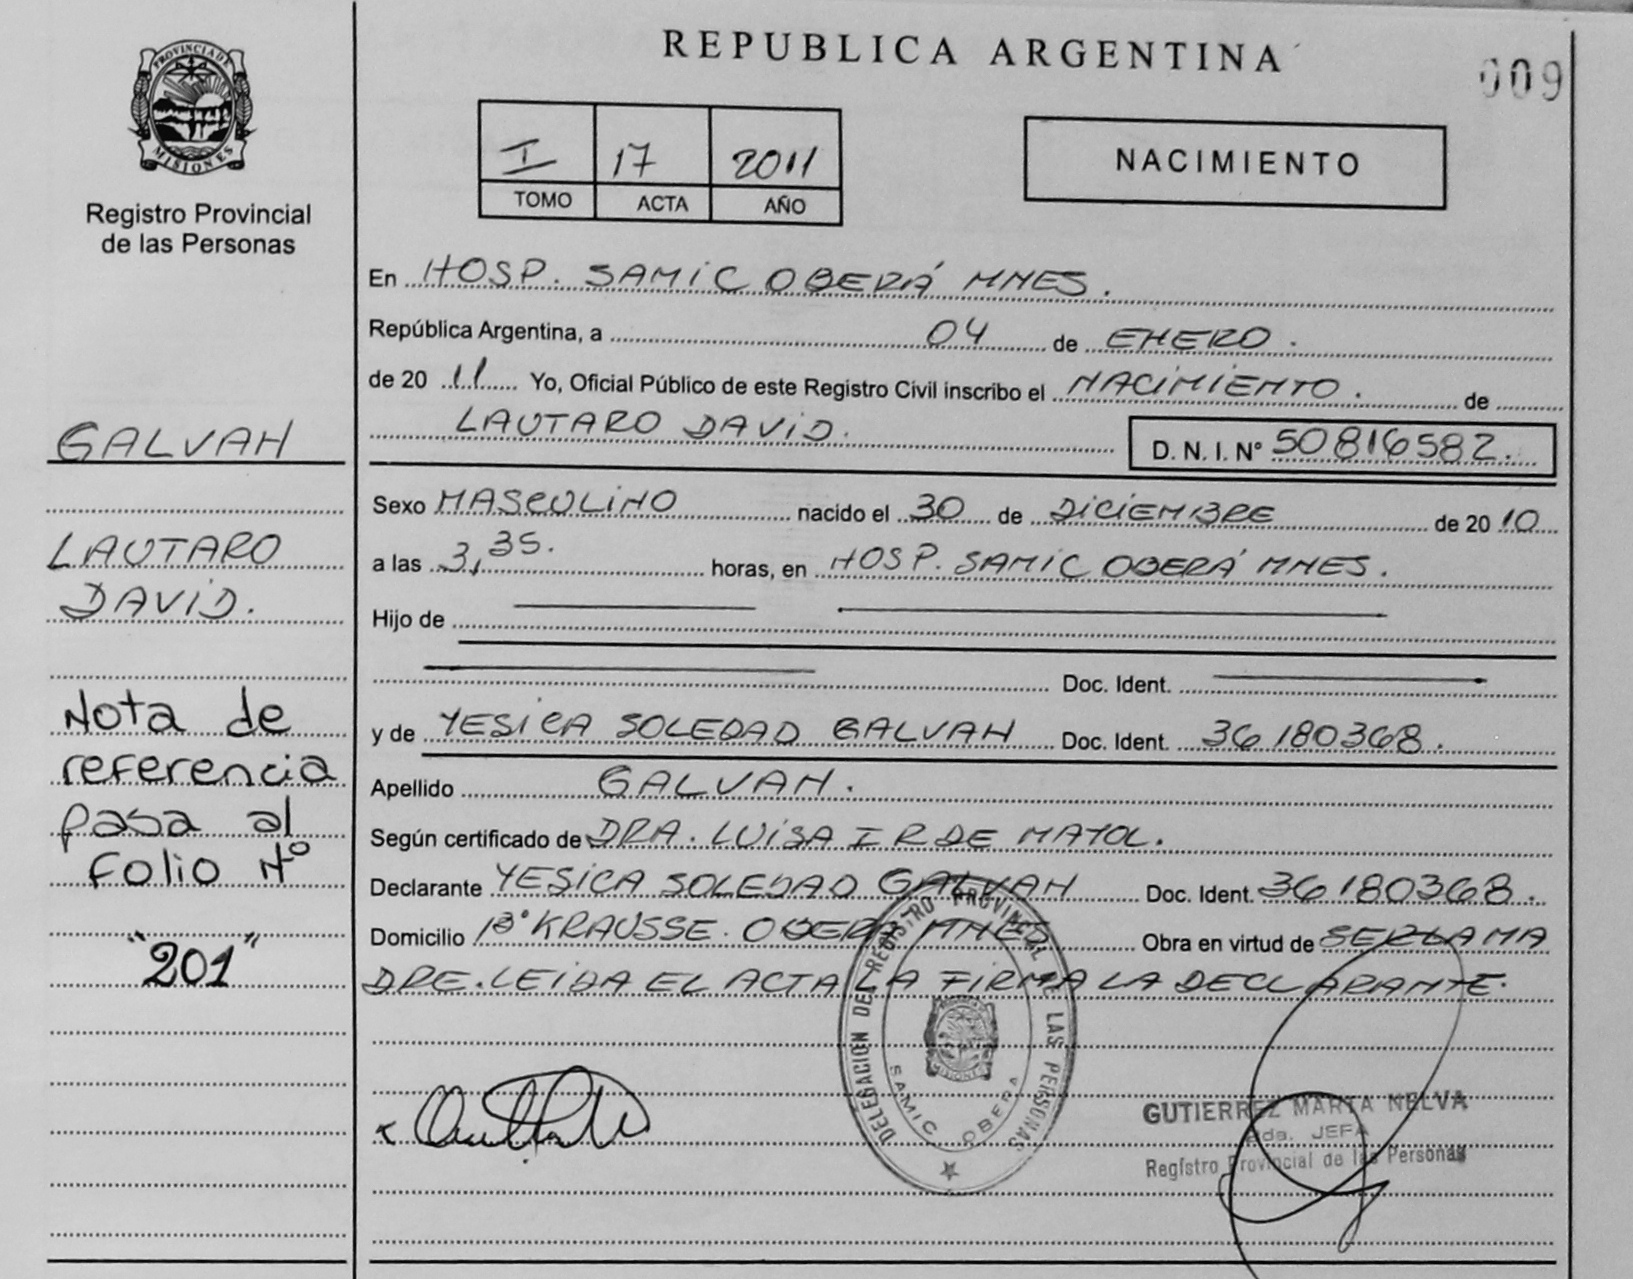 PROVINCIA DE
MISIONES
Registro Provincial
de las Personas
GALVAN
LAUTARO
DAVID.
Nota de
referencia
pasa al
Folio Nº
"201"
REPUBLICA ARGENTINA
009
I 17 2011
TOMO ACTA AÑO
NACIMIENTO
En HOSP. SAMIC OBERÁ MNES.
República Argentina, a 04 de ENERO.
de 20 11 Yo, Oficial Público de este Registro Civil inscribo el NACIMIENTO. de
LAUTARO DAVID. D. N. I. Nº 50816582.
Sexo MASCULINO nacido el 30 de DICIEMBRE de 20 10
a las 3,35. horas, en HOSP. SAMIC OBERÁ MNES.
Hijo de
Doc. Ident.
y de YESICA SOLEDAD GALVAN Doc. Ident. 36180368.
Apellido GALVAN.
Según certificado de DRA. LUISA I R DE MAYOL.
Declarante YESICA SOLEDAD GALVAN Doc. Ident. 36180368.
Domicilio Bº KRAUSSE. OBERA MNES Obra en virtud de SER LA MA
DRE. LEIDA EL ACTA LA FIRMA LA DECLARANTE.
DELEGACION DEL REGISTRO PROVINCIAL DE LAS PERSONAS
MISIONES
SAMIC OBERA
GUTIERREZ MARTA NELVA
2da. JEFA
Registro Provincial de las Personas